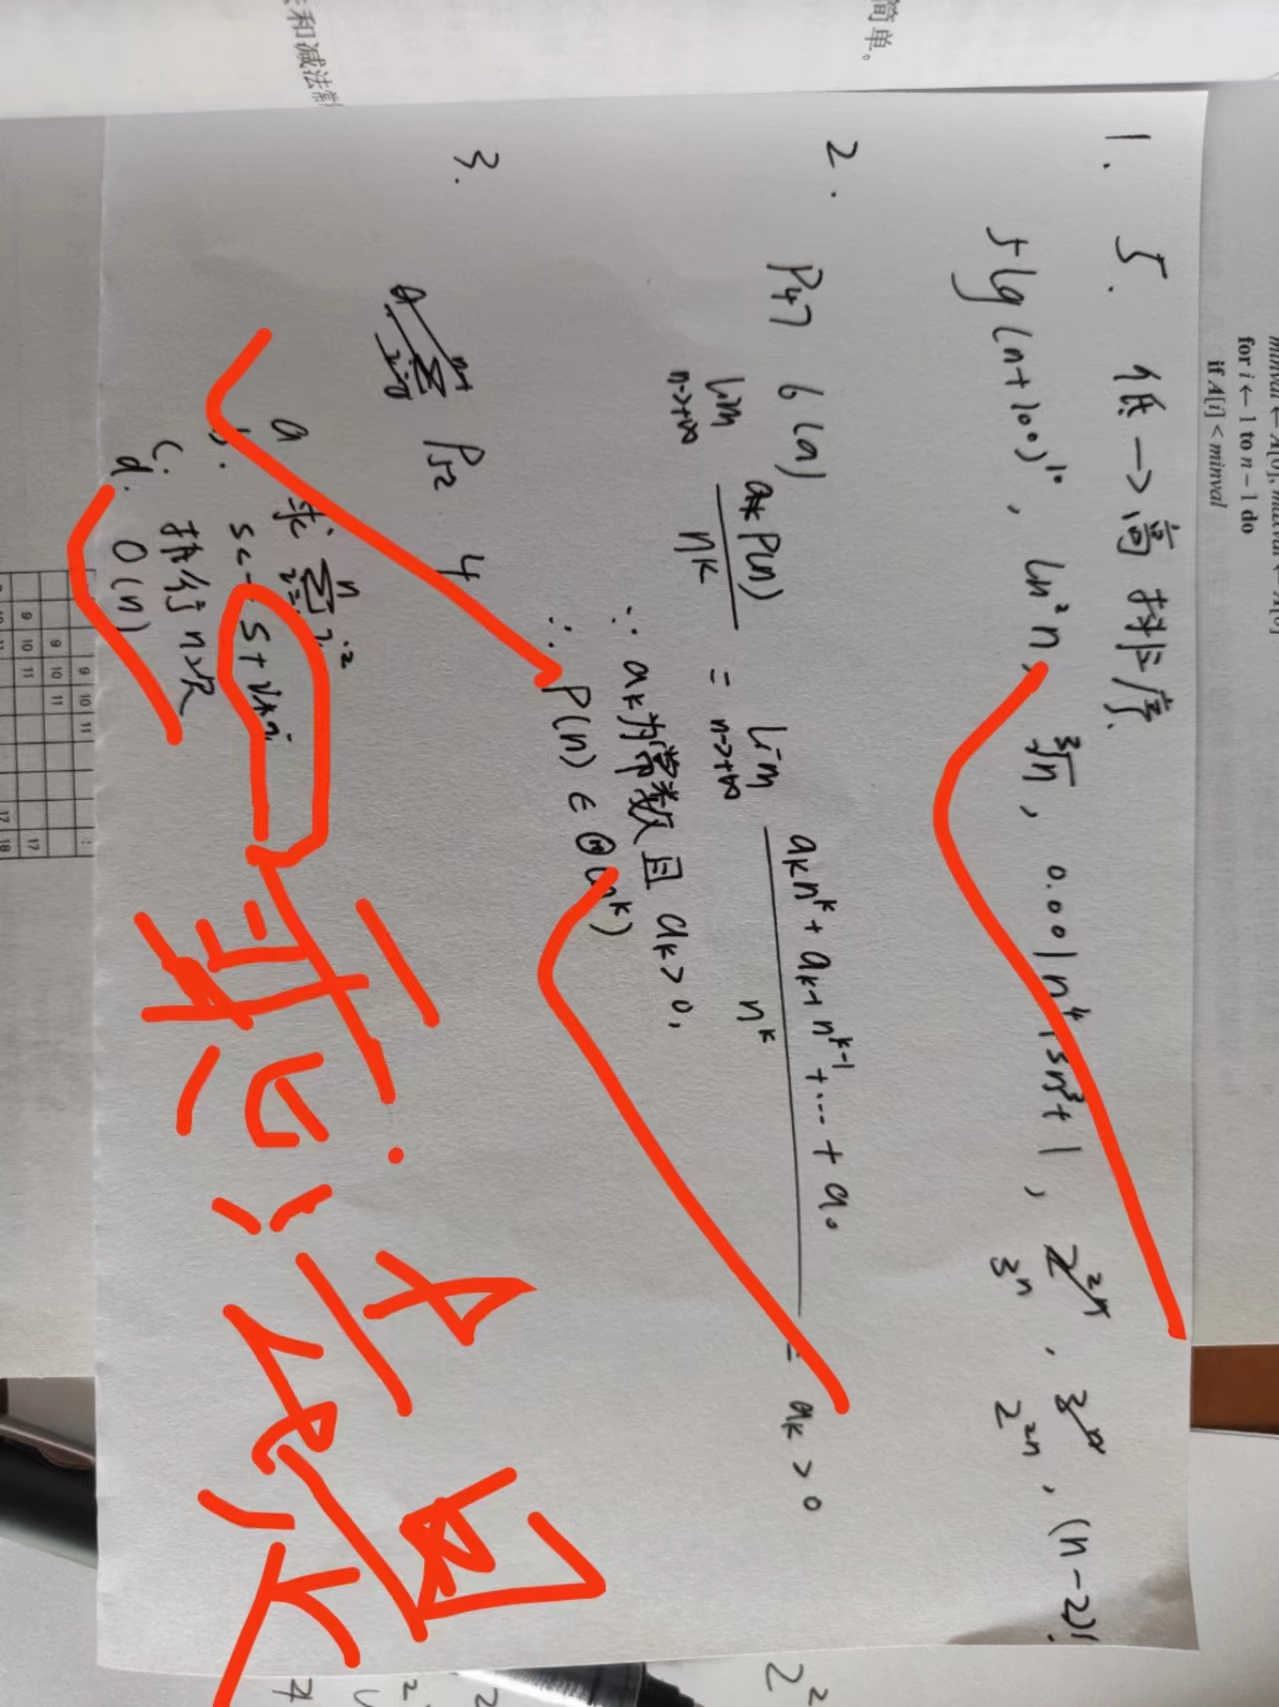 for i ← 1 to n – 1 do
if A[i] < minval
1. 5. 低→高 排序.
5lg(n+100)^10, ln²n, ∛n, 0.001n⁴+3n³+1, 3^n, 2^2n, (n-2)!
简单。
2.
P47 6(a)
lim n->+∞ P(n)/n^k = lim n->+∞ (a_k n^k + a_k-1 n^k-1 + ... + a₀)/n^k = a_k > 0
∵ a_k为常数且 a_k>0,
∴ P(n) ∈ Θ(n^k)
3.
P52 4
a 求 ∑ i²
b. s<- s+i*i
c. 执行n次
d. O(n)
乘法是
和减法常
9 10 11
9 10 11
9 10 11 17
17 18